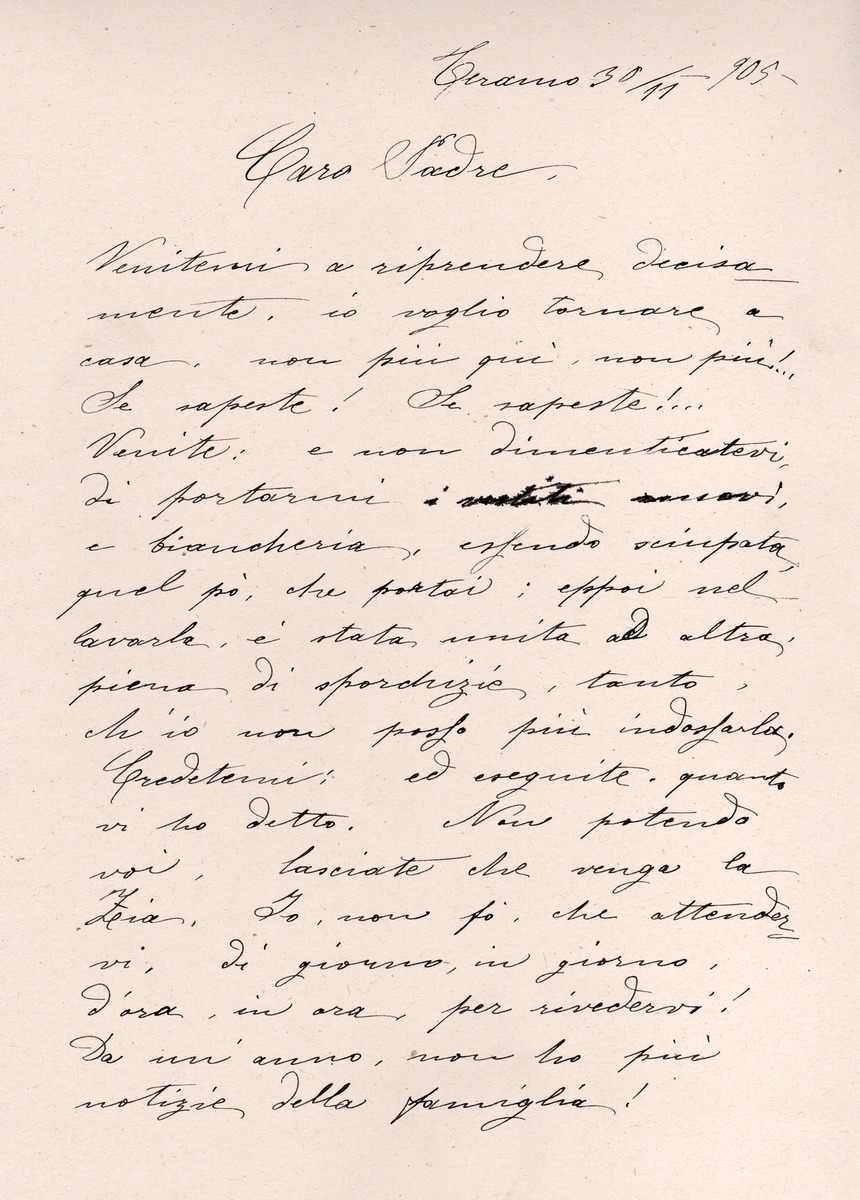 Teramo 30/11 905-
Caro Padre,
Venitemi a riprendere, decisa
mente, io voglio tornare, a
casa, non più quì, non più!...
Se sapeste! Se sapeste!...
Venite: e non dimenticatevi,
di portarmi i vestiti nuovi,
e biancheria, essendo sciupata,
quel pò, che portai; eppoi nel
lavarla, è stata unita ad altra,
piena di sporchizie, tanto,
ch'io non posso più indossarla.
Credetemi: ed eseguite, quanto
vi ho detto. Non potendo
voi, lasciate che venga la
Zia. Io, non fò, che attender-
vi, di giorno, in giorno,
d'ora, in ora, per rivedervi!
Da un'anno, non ho più
notizie della famiglia!